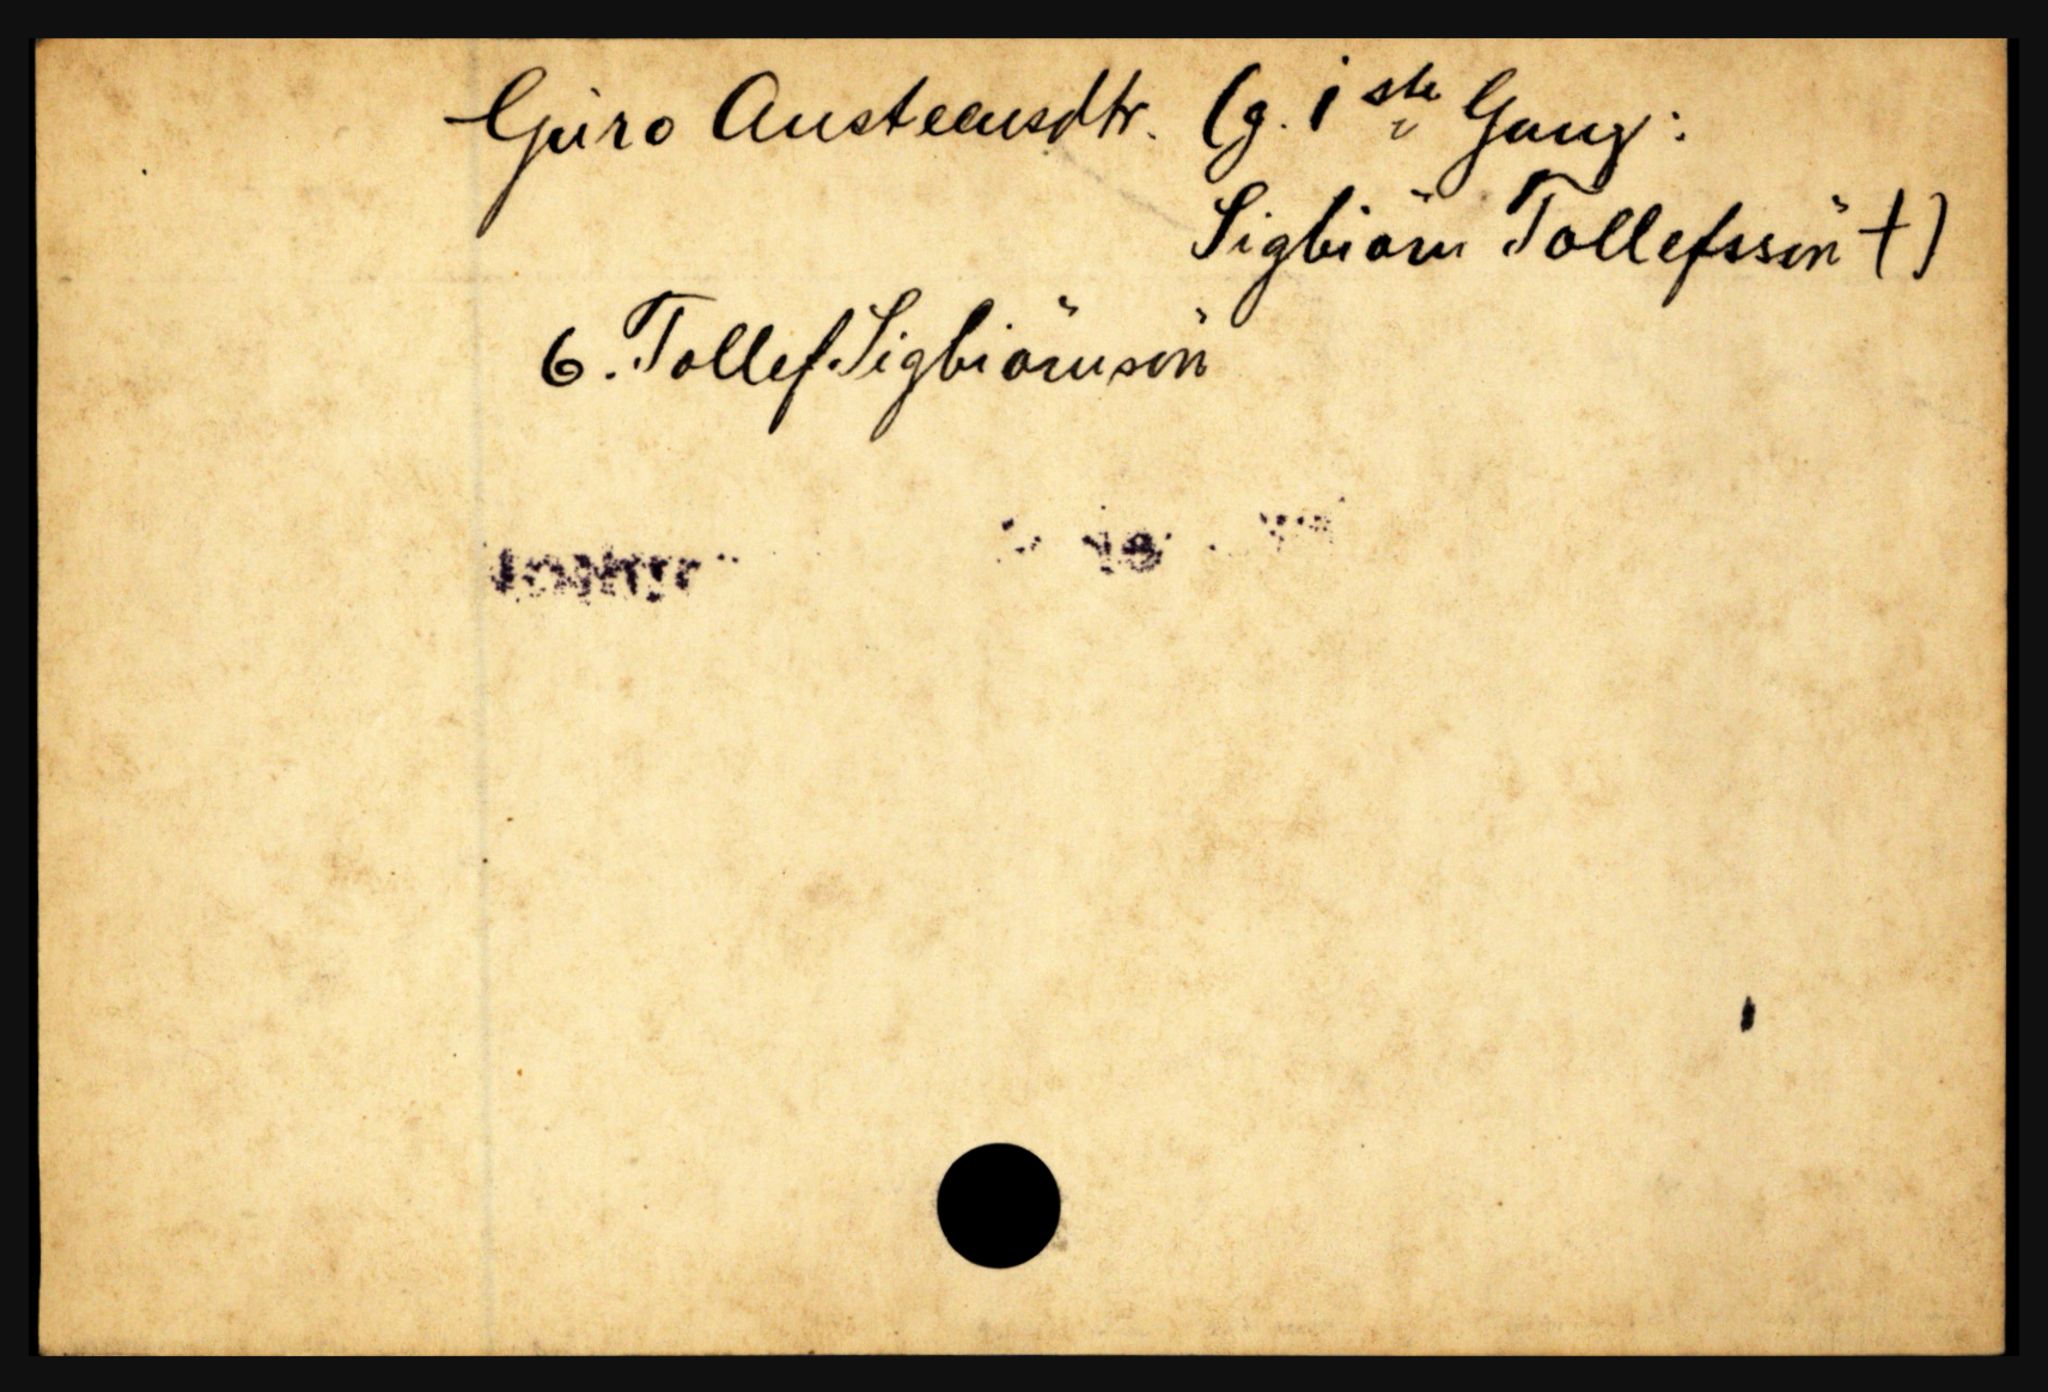 Guro Austeensdtr. (g. 1ste Gang:
Sigbiörn Tollefssön †)
6. Tollef Sigbiörnsön